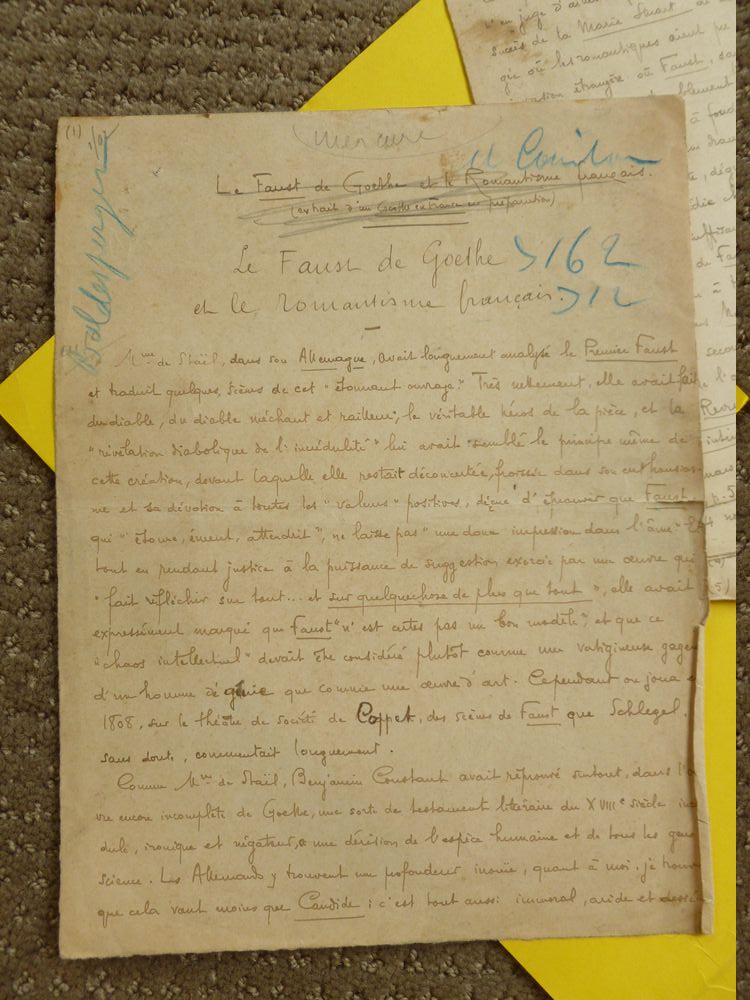 (1)
Baldensperger
Mercure
M Coinlon
Le Faust de Goethe et le Romantisme français.
(extrait d'un Goethe en France en préparation)
Le Faust de Goethe > 162
et le romantisme français. > 12
Mme de Staël, dans son Allemagne, avait longuement analysé le Premier Faust
et traduit quelques scènes de cet "étonnant ouvrage." Très nettement, elle avait fait
du diable, du diable méchant et railleur, le véritable héros de la pièce, et la
"révélation diabolique de l'incrédulité" lui avait semblé le principe même de
cette création, devant laquelle elle restait déconcertée, froissée dans son enthousias-
me et sa dévotion à toutes les "valeurs" positives, déçue d'éprouver que Faust,
qui "étonne, émeut, attendrit", ne laisse pas "une douce impression dans l'âme". Et
tout en rendant justice à la puissance de suggestion exercée par une œuvre qui
"fait réfléchir sur tout... et sur quelque chose de plus que tout", elle avait
expressément marqué que Faust "n'est certes pas un bon modèle", et que ce
"chaos intellectuel" devait être considéré plutôt comme une vertigineuse gageu
d'un homme de génie que comme une œuvre d'art. Cependant on joua e
1808, sur le théâtre de société de Coppet, des scènes de Faust que Schlegel,
sans doute, commentait longuement.
Comme Mme de Staël, Benjamin Constant avait réprouvé surtout, dans l'œ
vre encore incomplète de Goethe, une sorte de testament littéraire du XVIIIe siècle incré
dule, ironique et négateur, une dérision de l'espèce humaine et de tous les gens
science. Les Allemands y trouvent une profondeur inouïe, quant à moi, je trouve
que cela vaut moins que Candide ; c'est tout aussi immoral, aride et
succès de la Marie Stuart
où les romantiques aient pu
étrangère où Faust,
à fond
de Fau
second
Revue
p. 5
(4)
(5)